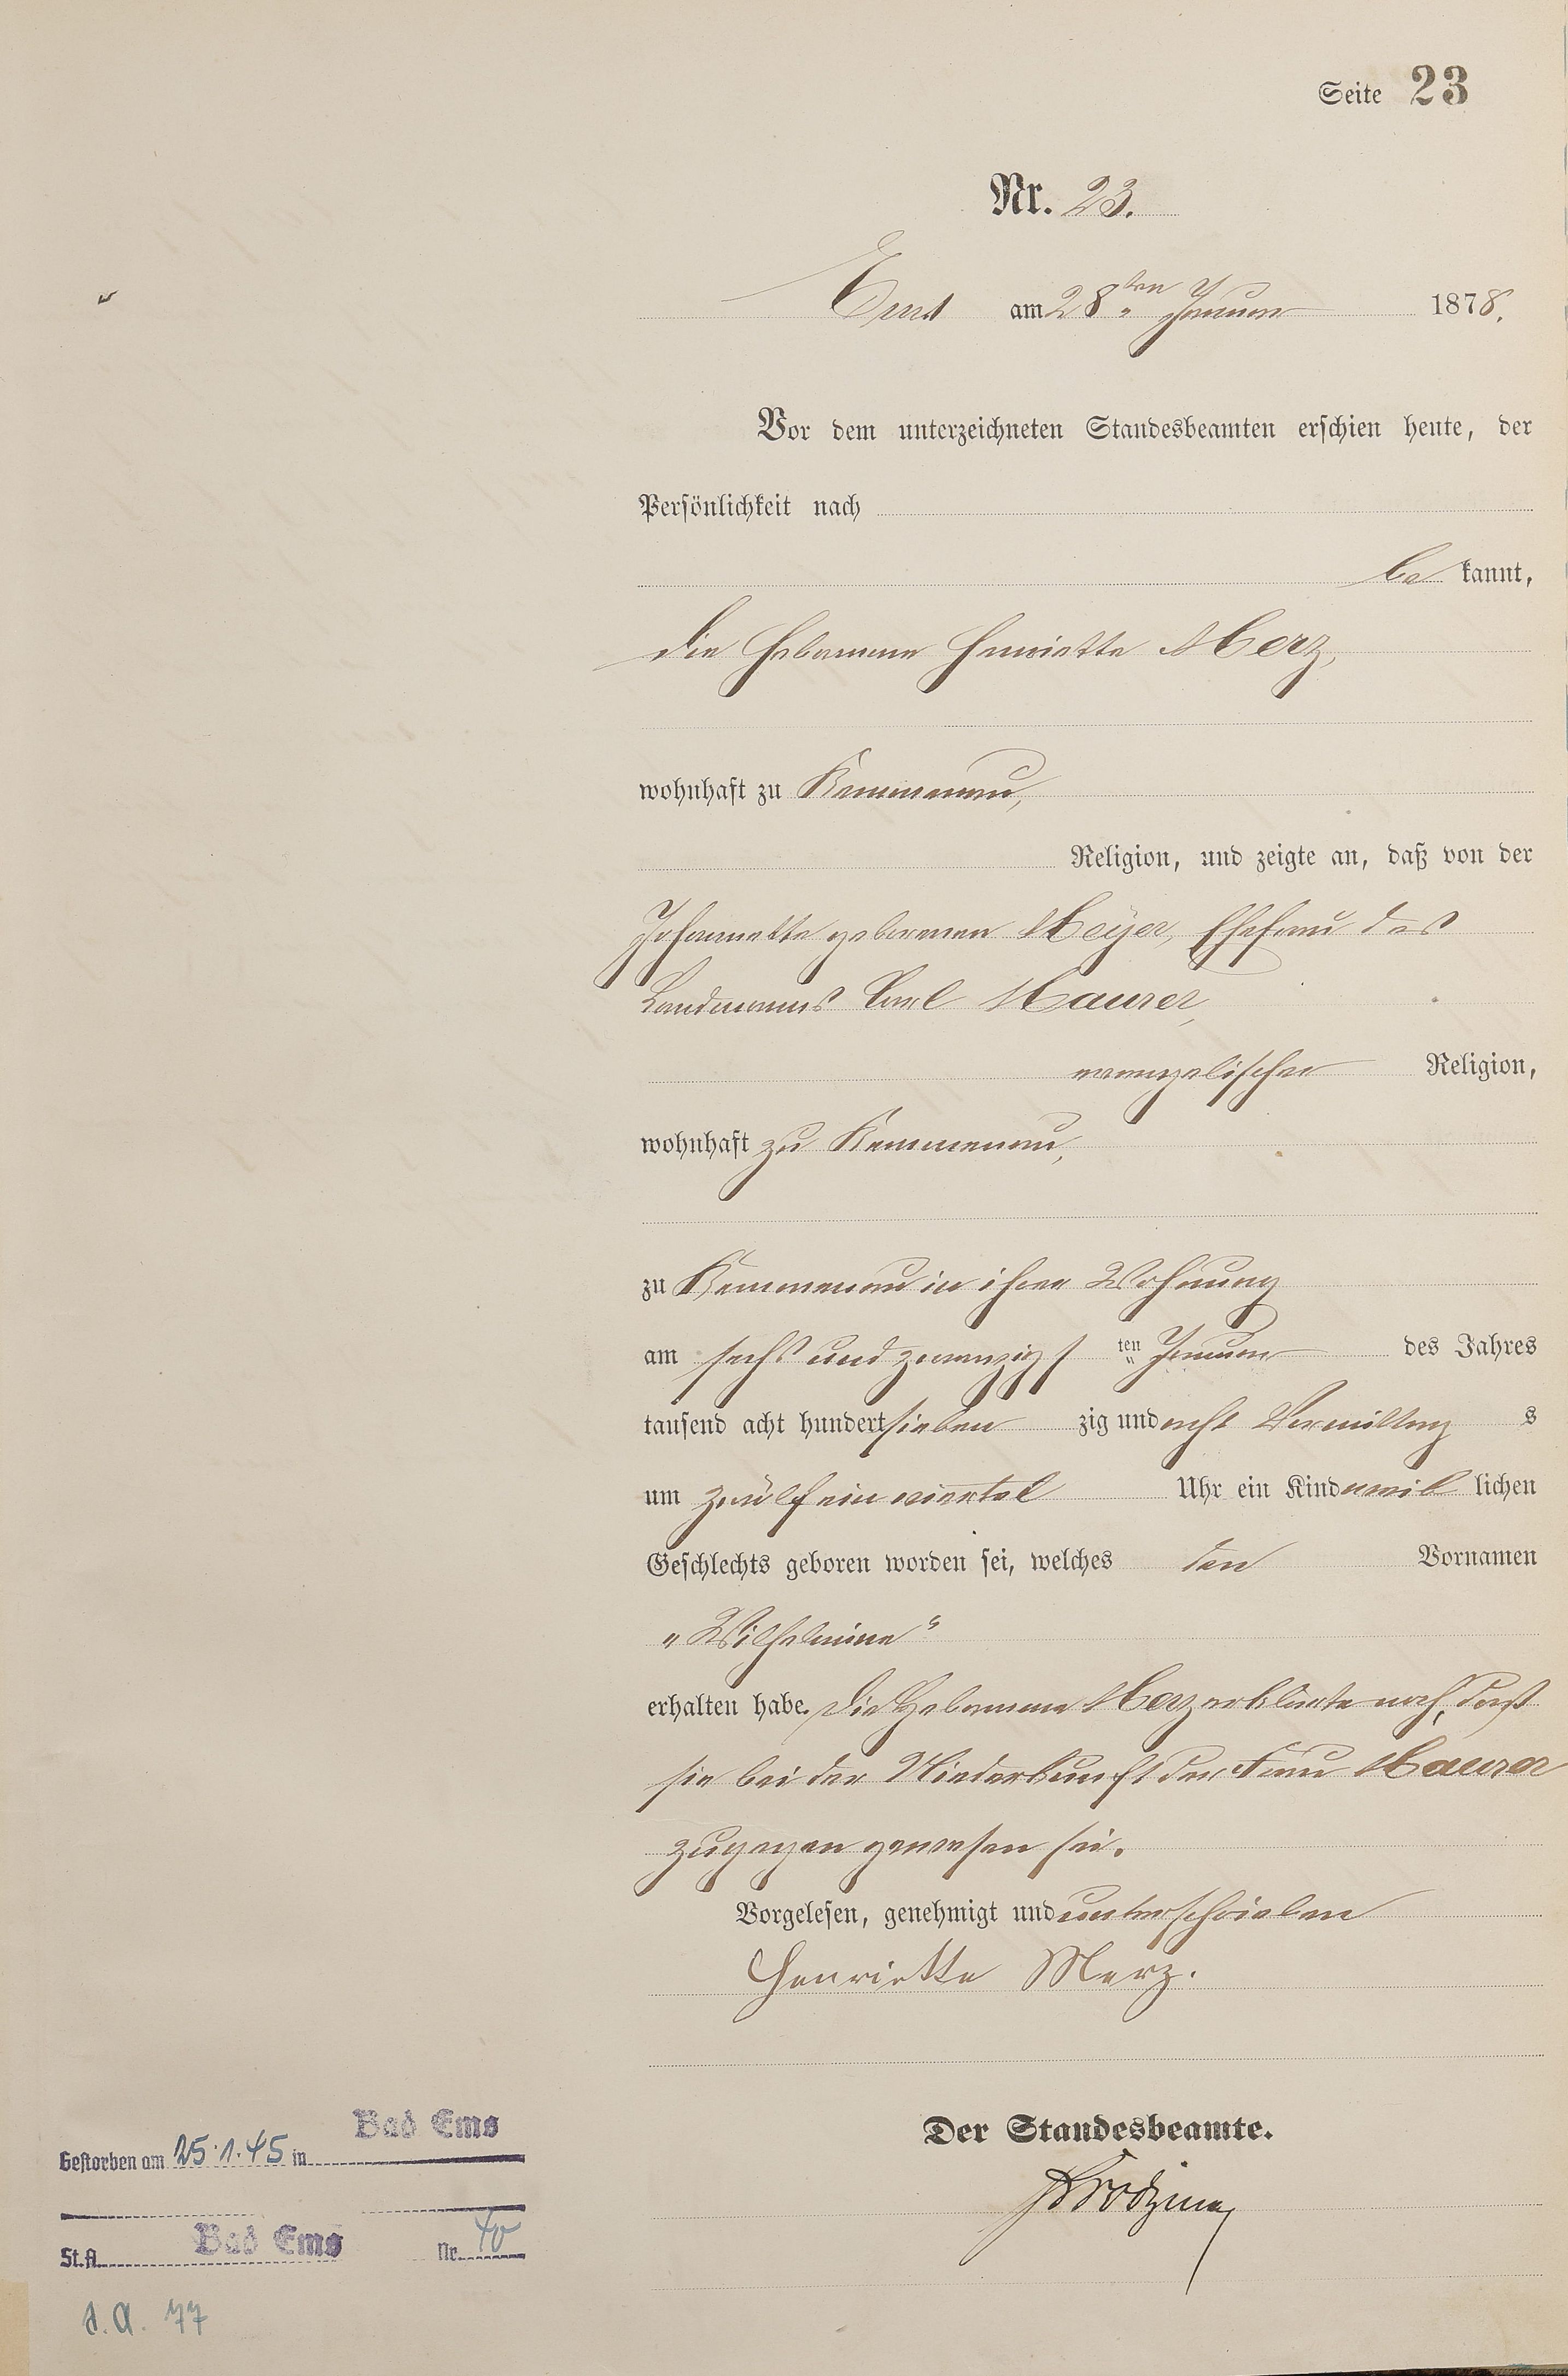 Seite 23
Nr. 23.
Ems am 28ten Januar 1878.
Vor dem unterzeichneten Standesbeamten erschien heute, der
Persönlichkeit nach
be kannt,
die Hebamme Henriette Merz,
wohnhaft zu Kemmenau,
Religion, und zeigte an, daß von der
Johannette geborenen Meyer, Ehefrau des
Landmanns Carl Maurer,
evangelischer Religion,
wohnhaft zu Kemmenau,
zu Kemmenau in ihrer Wohnung
am sechs und zwanzigs ten Januar des Jahres
tausend acht hundert sieben zig und acht Vormittag s
um zwölf ein viertel Uhr ein Kind weib lichen
Geschlechts geboren worden sei, welches den Vornamen
„Wilhelmine“
erhalten habe. Die Hebamme Merz erklärte noch, daß
sie bei der Niederkunft der Frau Maurer
zugegen gewesen sei.
Vorgelesen, genehmigt und unterschrieben
Henriette Merz.
Der Standesbeamte.
Gestorben am 25.1.45 in Bad Ems
St.A. Bad Ems Nr. 40
S.A. 77